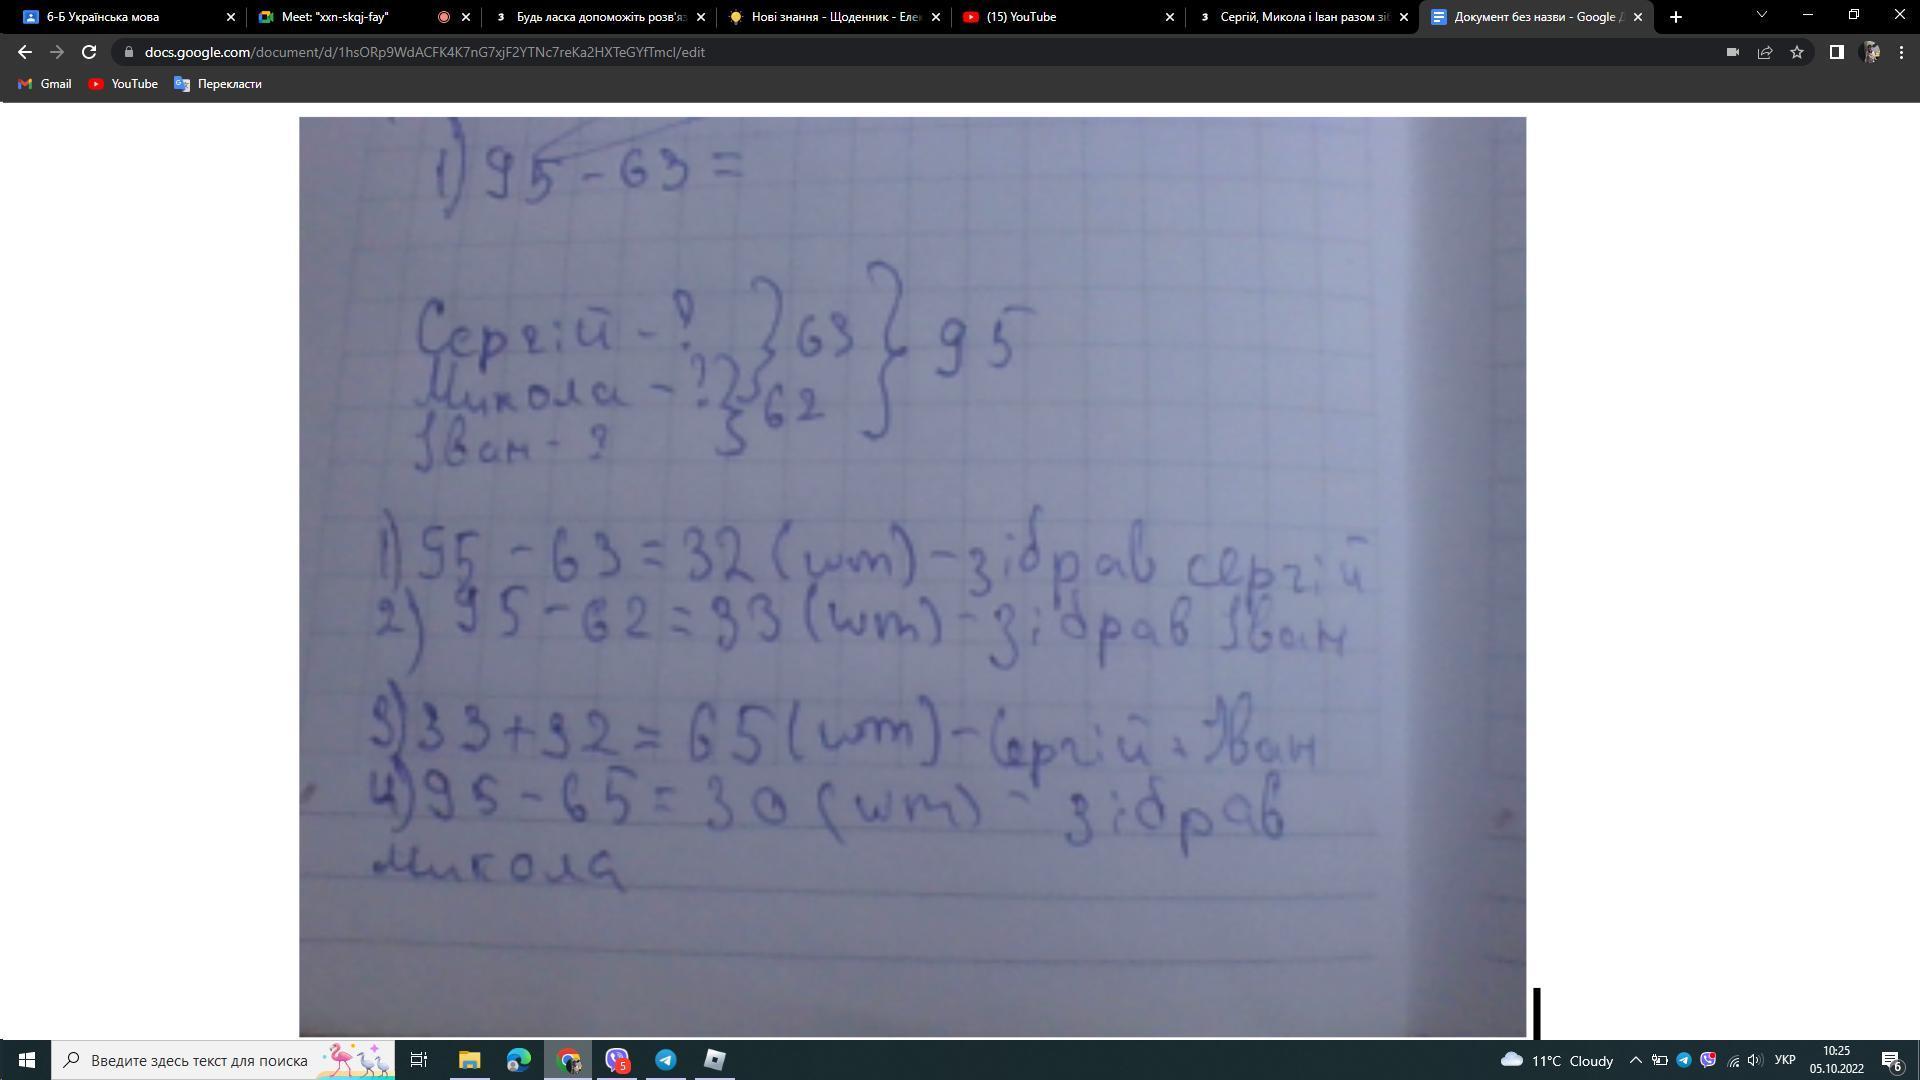 6-Б Українська мова
Meet: "xxn-skqj-fay"
Будь ласка допоможіть розв'яз
Нові знання - Щоденник - Елек
(15) YouTube
Сергій, Микола і Іван разом зіб
Документ без назви - Google Д
docs.google.com/document/d/1hsORp9WdACFK4K7nG7xjF2YTNc7reKa2HXTeGYfTmcI/edit
Gmail
YouTube
Перекласти
1) 95 - 63 =
Сергій - ? } 63 } 95
Микола - ? } 62
Іван - ?
1) 95 - 63 = 32 (шт) - зібрав сергій
2) 95 - 62 = 33 (шт) - зібрав Іван
3) 33 + 32 = 65 (шт) - Сергій і Іван
4) 95 - 65 = 30 (шт) - зібрав
Микола
Введите здесь текст для поиска
5
11°C Cloudy
УКР
10:25
05.10.2022
6